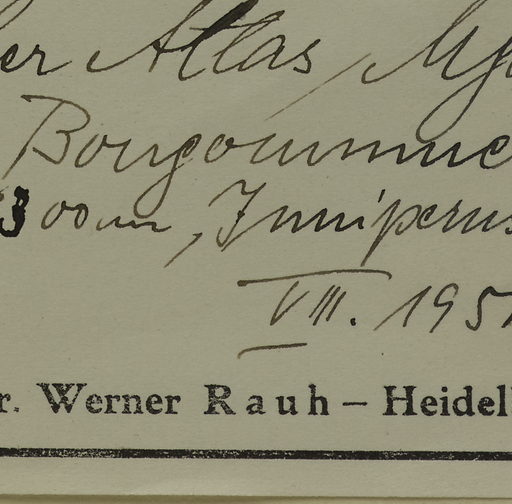 er Atlas, Mg
Bougoumme
3000m, Juniperus
VIII. 1951
r. Werner Rauh – Heidel